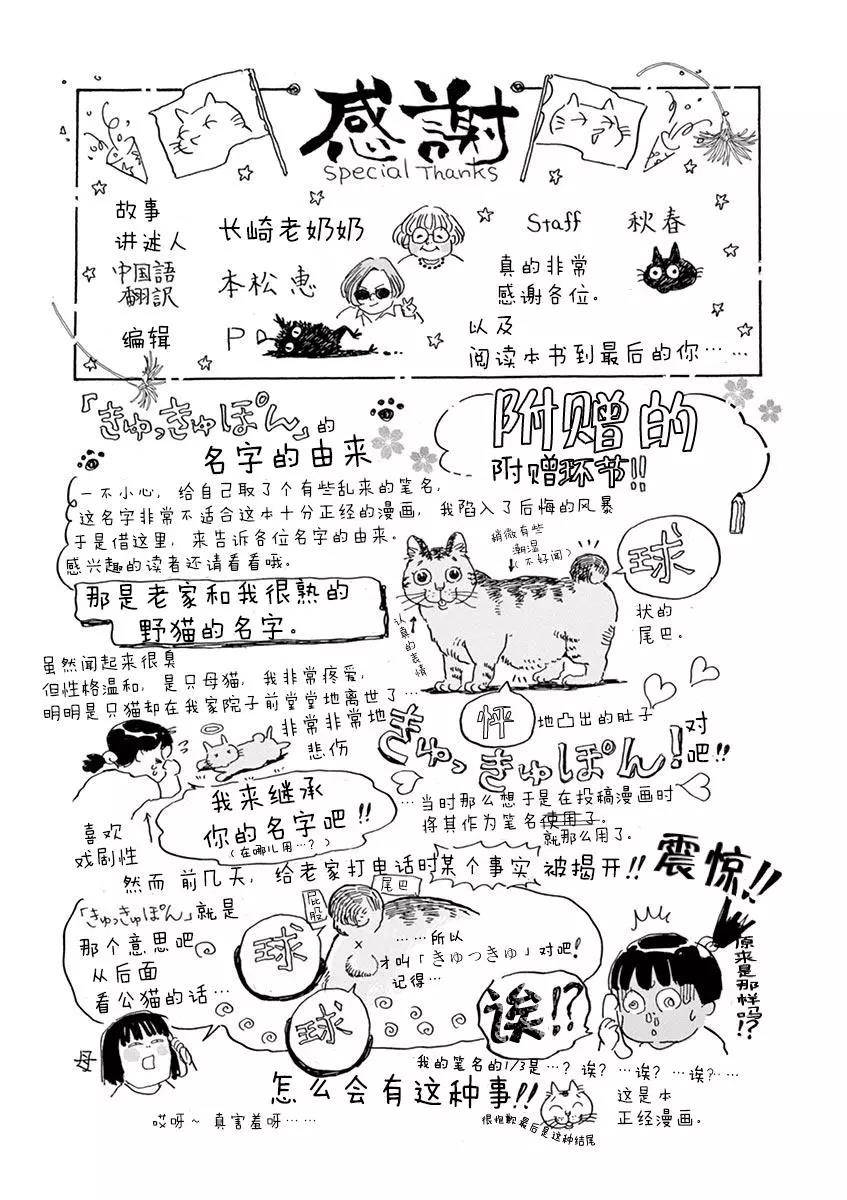 感謝
Special Thanks
故事
讲述人
长崎老奶奶
中国語
翻訳
本松惠
编辑
P
Staff
秋春
真的非常
感谢各位。
以及
阅读本书到最后的你……
「きゅっきゅぽん」的
名字的由来
附赠的
附赠环节!!
一不小心，给自己取了个有些乱来的笔名，
这名字非常不适合这本十分正经的漫画，我陷入了后悔的风暴
于是借这里，来告诉各位名字的由来。
感兴趣的读者还请看看哦。
那是老家和我很熟的
野猫的名字。
稍微有些
潮湿
(不好闻)
球
状的
尾巴。
认真的表情
虽然闻起来很臭
但性格温和，是只母猫，我非常疼爱，
明明是只猫却在我家院子前堂堂地离世了…
非常非常地
悲伤
怦
地凸出的肚子
きゅっきゅぽん!
对
吧!!
我来继承
你的名字吧!!
(在哪儿用…?)
喜欢
戏剧性
…当时那么想于是在投稿漫画时
将其作为笔名使用了。
就那么用了。
然而 前几天，给老家打电话时某个事实 被揭开!!
震惊!!
原来是那样吗!?
「きゅっきゅぽん」就是
那个意思吧
从后面
看公猫的话…
屁股
尾巴
球
球
……所以
才叫「きゅっきゅ」对吧!
记得…
诶!?
母
我的笔名的1/3是…? 诶? …诶? …诶? ……
怎么会有这种事!!
这是本
正经漫画。
哎呀~ 真害羞呀……
很抱歉最后是这种结尾